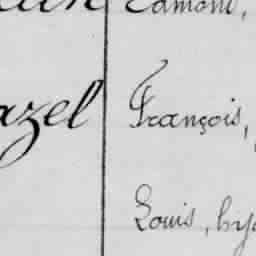 Edmond,
azel François,
Louis, hya